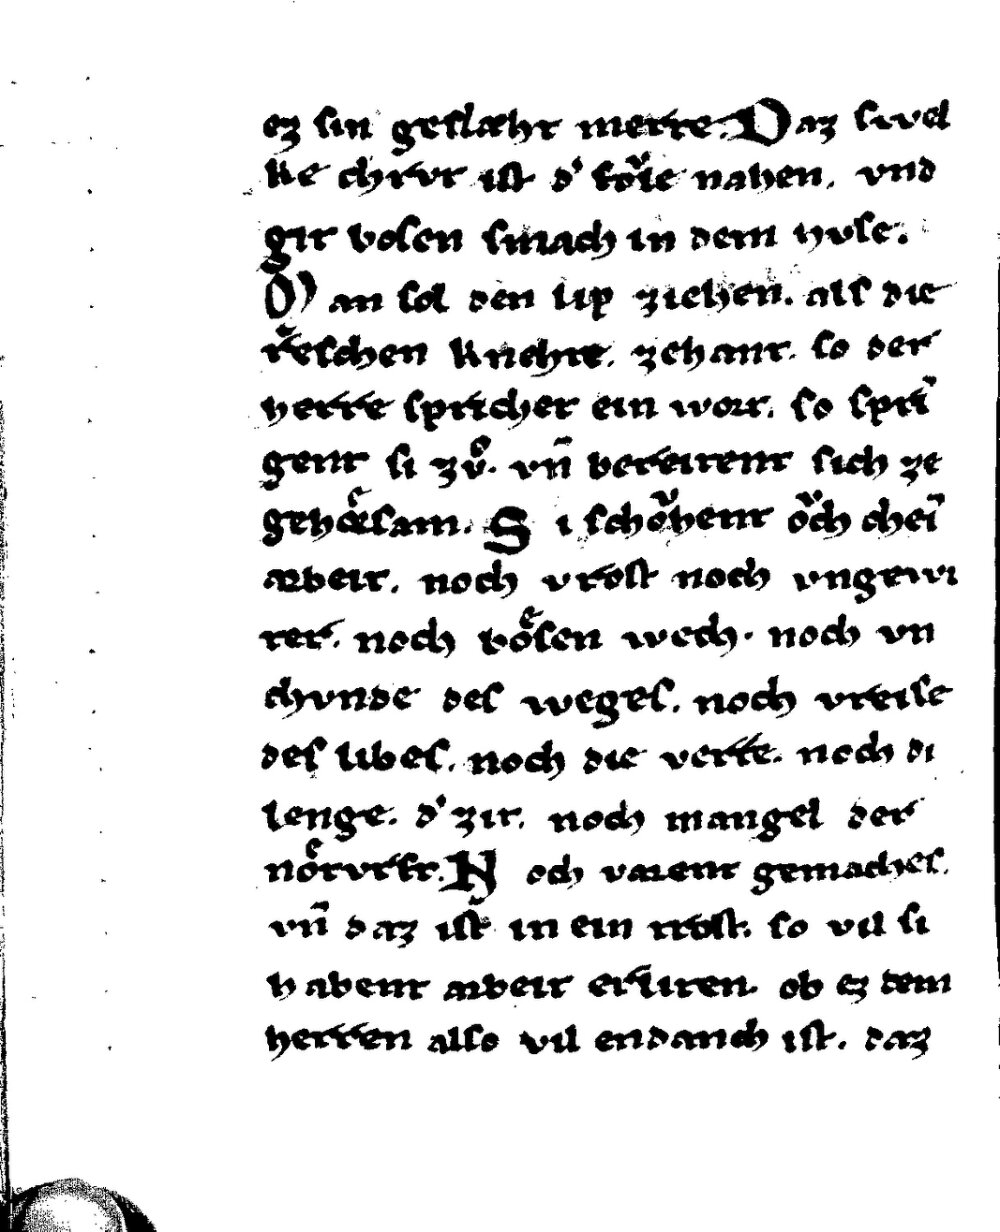 ez sin geslæht merre. Daz swel
ke chrvt ist d' fv̊le nahen. vnd
git bosen smach in dem hvse.
Man sol den lip ziehen. als die
reͤschen knehte. zehant. so der
herre sprichet ein wort. so sprī
gent si zv̊. vn̄ bereitent sich ze
gehoͤrsam. Si schoͮhent oͮch cheī
arbeit. noch vrost noch vngewi
ter. noch boͤsen wech. noch vn
chvnde des weges. noch vreise
des libes. noch die verre. noch di
lenge. d' zit. noch mangel der
noͤtvrft. Noch varent gemaches.
vn̄ daz ist in ein trost. so vil si
habent arbeit erliten. ob ez dem
herren also vil endanch ist. daz